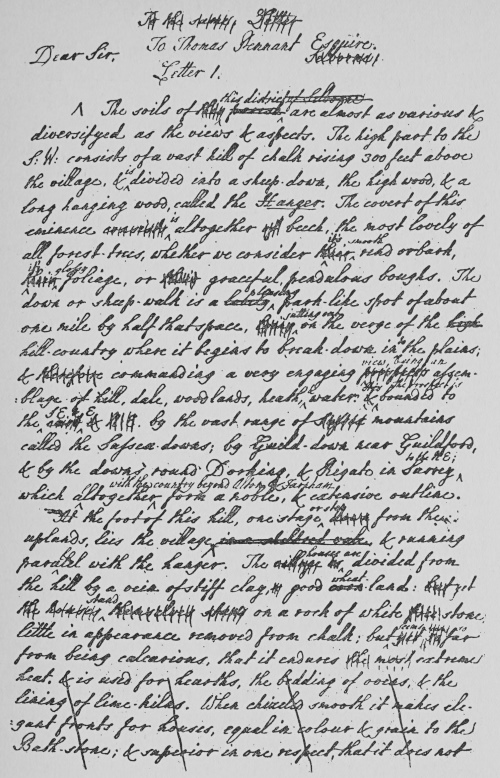 To Thomas Pennant Esquire.
Dear Sir.
Letter 1.
this district of Selborne
The soils of parish are almost as various &
diversifyed as the views & aspects. The high part to the
S:W: consists of a vast hill of chalk rising 300 feet above
the village, & is divided into a sheep-down, the high wood, & a
long hanging wood, called the Hanger. The covert of this
eminence is altogether beech, the most lovely of
all forest-trees, whether we consider its smooth rind or bark,
its glossy foliage, or graceful, pendulous boughs. The
down or sheep-walk is a pleasing park-like spot of about
one mile by half that space, jutting out on the verge of the high
hill-country where it begins to break down into the plains;
view, being an
& commanding a very engaging assem-
blage of hill, dale, woodlands, heath, & water. The prospect is bounded to
the S:E: & E. by the vast range of mountains
called the Sussex-downs; by Guild-down near Guildford,
& by the downs round Dorking, & Rigate in Surrey, to the N:E:;
with the country beyond Alton & Farnham,
which altogether form a noble, & extensive outline.
At the foot of this hill, one stage, or step from these
uplands, lies the village, & running
parallel with the hanger. The houses are divided from
the hill by a vein of stiff clay, good wheat-land: yet
stand on a rock of white stone
little in appearance removed from chalk; but seems so far
from being calcarious, that it endures extreme
heat, & is used for hearths, the bedding of ovens, & the
lining of lime-kilns. When chizzled smooth it makes ele-
gant fronts for houses, equal in colour & grain to the
Bath-stone; & superior in one respect, that it does not